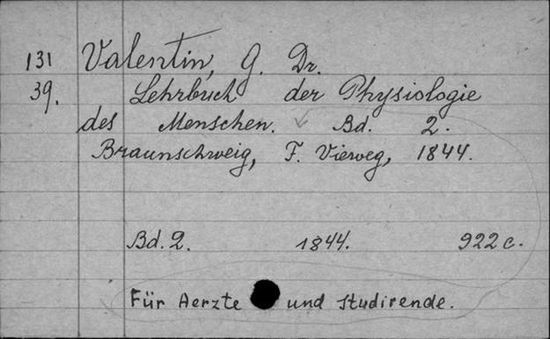 131 Valentin, G. Dr.
39. Lehrbuch der Physiologie
des Menschen. Bd. 2.
Braunschweig, F. Vieweg, 1844.
Bd. 2. 1844. 922 c.
Für Aerzte und Studirende.